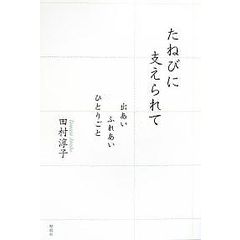 たねびに
支えられて
出あい
ふれあい
ひとりごと
田村淳子